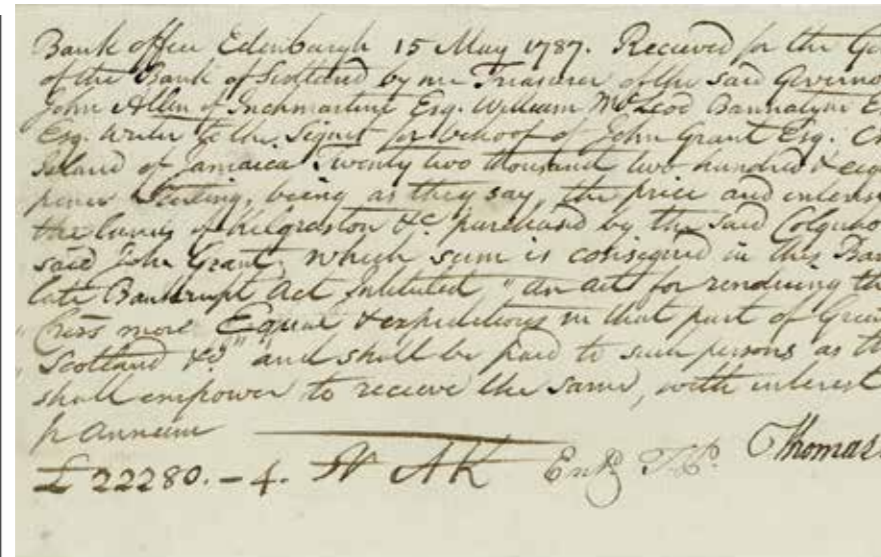 Bank office Edinburgh 15 May 1787. Recieved for the Go
of the Bank of Scotland by me Treasurer of the said Governo
John Allen of Inchmartine Esq. William McLeod Bannatyne E
Esq. Writer to the Signet for behoof of John Grant Esq. Ch
Island of Jamaica Twenty two thousand two hundred & eig
pence Sterling, being as they say, the price and interes
the lands of Kilgraston &c. purchased by the said Colquho
said John Grant, which sum is consigned in this Ban
late Bankrupt Act Intituled "an act for rendering th
more Equal & expeditious in that part of Grea
"Scotland &c" and shall be paid to such persons as th
shall empower to recieve the same, with interest
pr annum
£22280.-4. AK Entd. Thomas